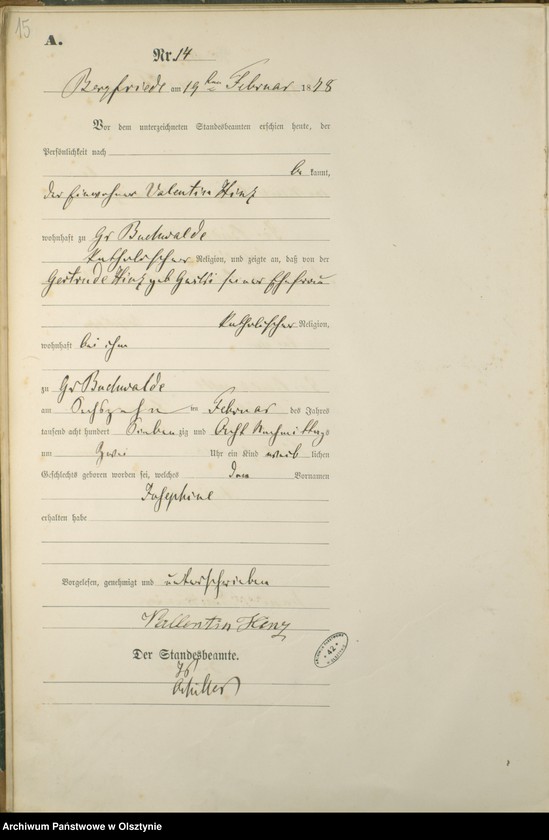 15
A.
Nr. 14
Bergfriede am 19ten Februar 1878
Vor dem unterzeichneten Standesbeamten erschien heute, der
Persönlichkeit nach
be kannt,
der Einwohner Valentin Hinz
wohnhaft zu Gr Buchwalde
katholischer Religion, und zeigte an, daß von der
Gertrude Hinz geb seiner Ehefrau
katholischer Religion,
wohnhaft bei ihm
zu Gr Buchwalde
am Sechszehn ten Februar des Jahres
tausend acht hundert Sieben zig und Acht Nachmittags
um Zwei Uhr ein Kind weib lichen
Geschlechts geboren worden sei, welches den Vornamen
Josephine
erhalten habe
Vorgelesen, genehmigt und unterschrieben
Vallentin Henz
Der Standesbeamte.
42
Archiwum Państwowe w Olsztynie